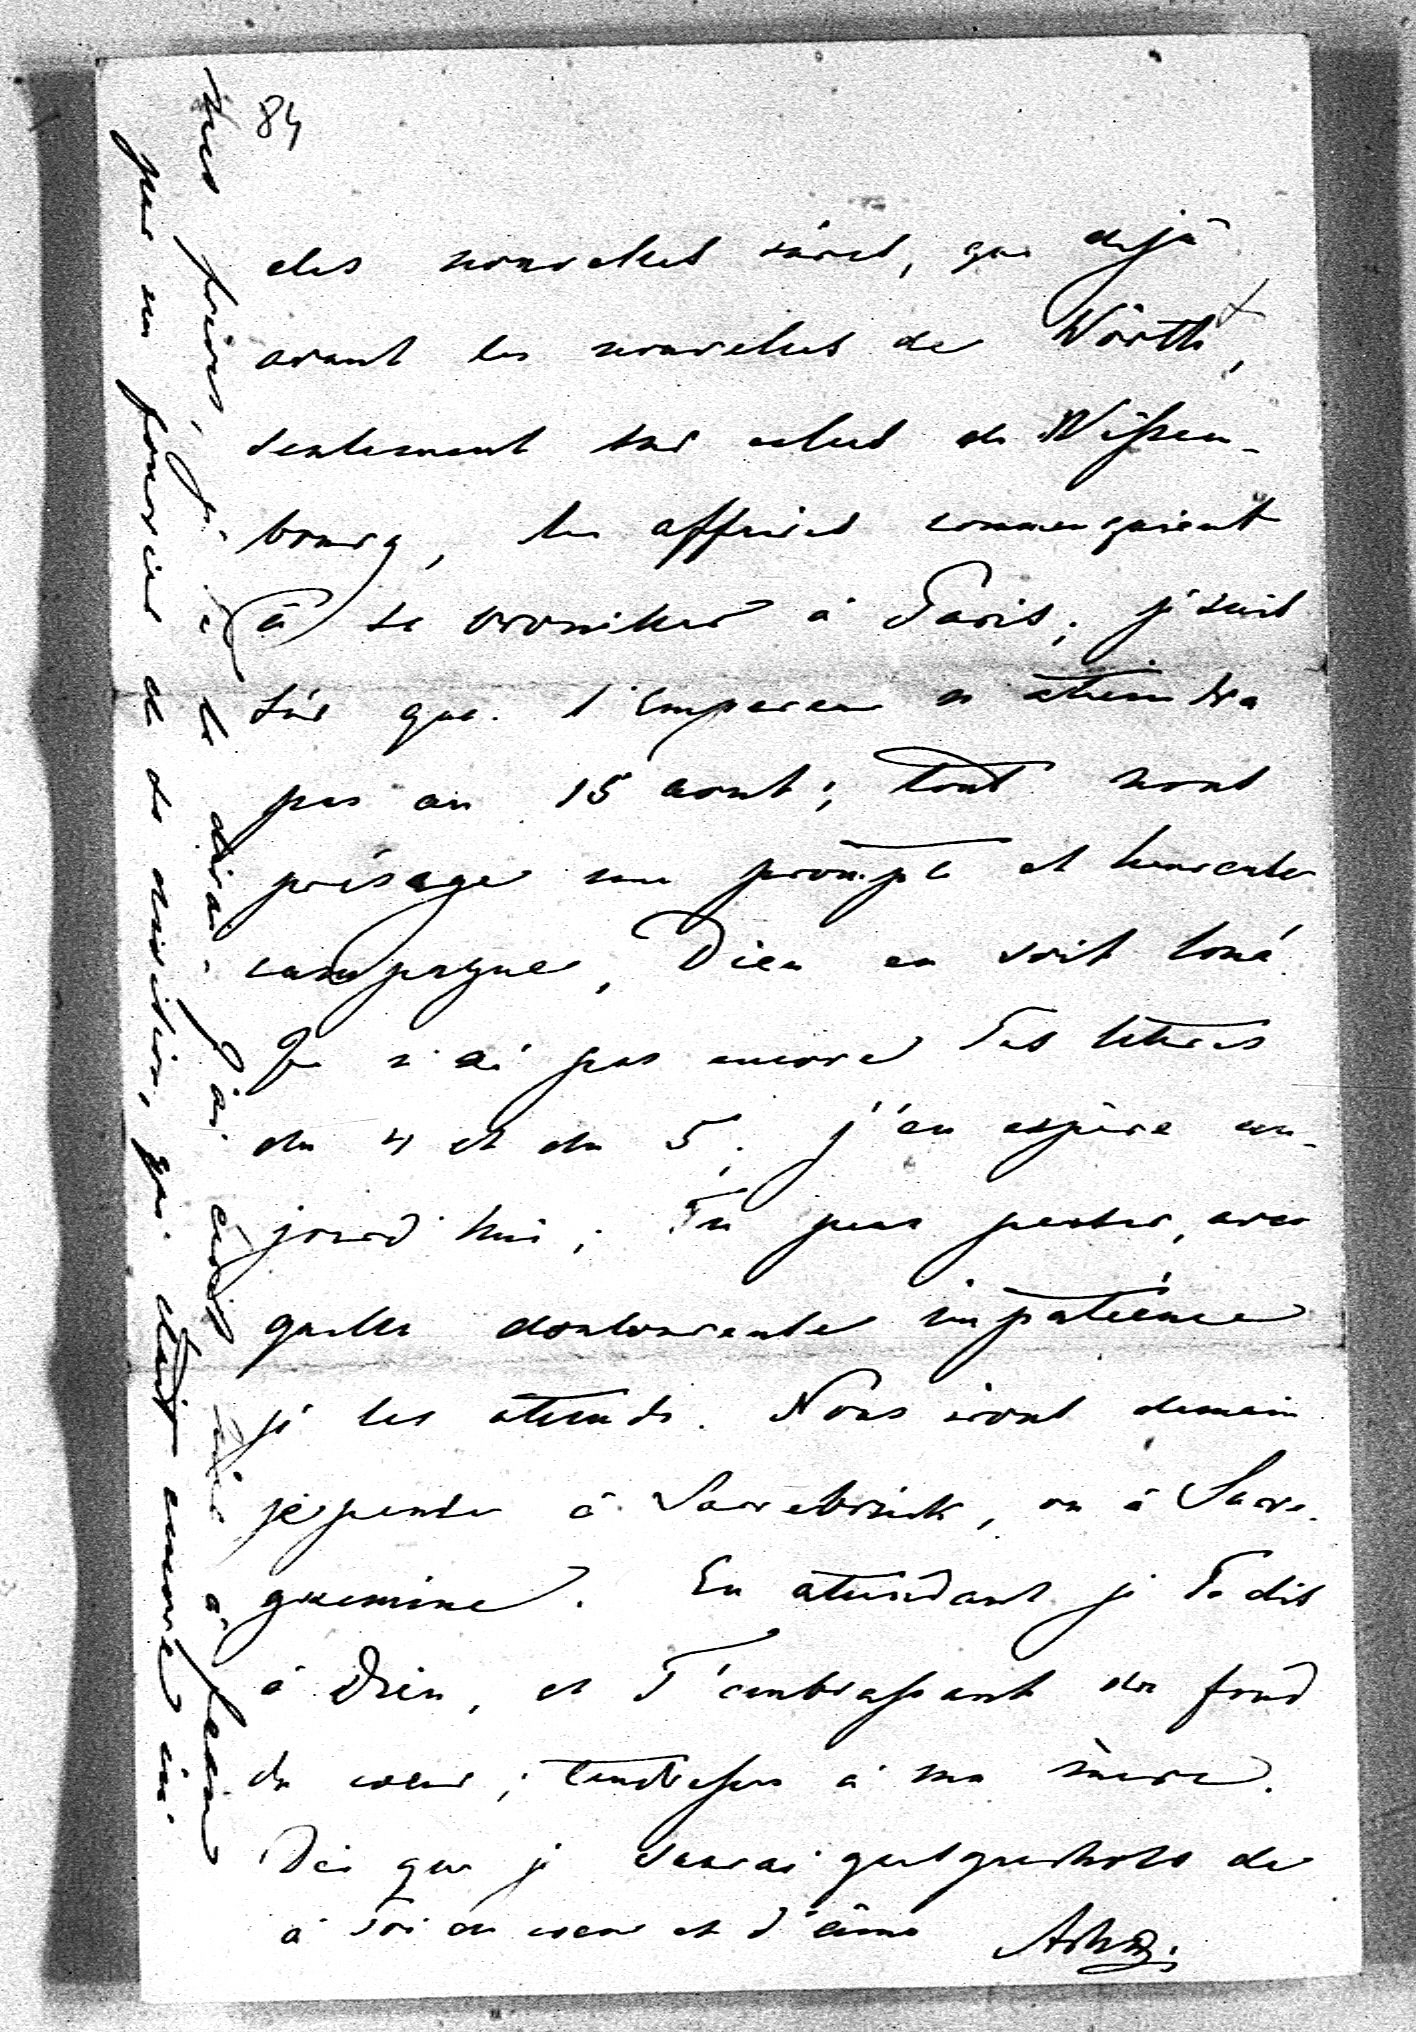 84
des nouvelles sûres, que dejà
avant les nouvelles de Wörth,
seulement sur celles de Weißen-
bourg, les affaires commençaient
à se brouiller à Paris; je suis
sûr que l'Empereur n'atteindra
pas au 15 aout; tout nous
présage une prompte et heureuse
campagne, Dieu en soit loué.
Je n'ai pas encore Tes lettres
du 4 et du 5; j'en espère au-
jourd'hui; Tu peux penser, avec
quelle douloureuse impatience
je les attends. Nous irons demain
je pense à Saarebrück, ou à Saare-
guemine. En attendant je Te dis
à Dieu, et T'embrassant du fond
du coeur; tendresses à ma mère.
Dès que je saurai quelquechose de
à Toi de coeur et d'âme
mes frères, je Te le dirai. J'ai écrit hier à
par un fourier de sa division, qui était encore ici